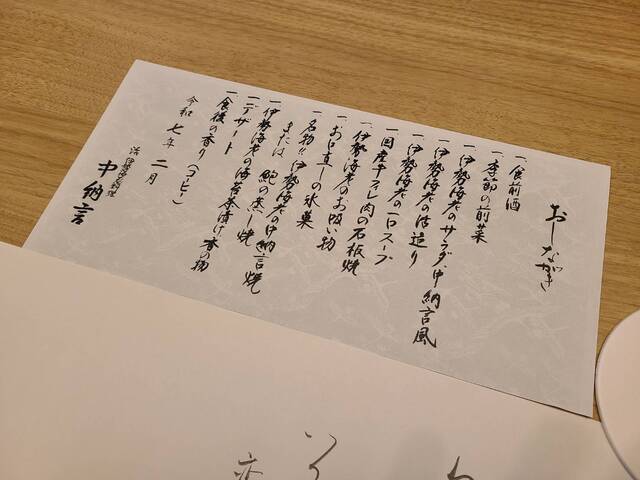 おしながき
一 食前酒
一 季節の前菜
一 伊勢海老のサラダ 中納言風
一 伊勢海老の活造り
一 伊勢海老の一口スープ
一 国産牛フィレ肉の石板焼
一 伊勢海老のお吸い物
一 お口直しの氷菓
一 名物!! 伊勢海老の中納言焼
または 鮑の蒸し焼
一 伊勢海老の海苔茶漬け 香の物
一 デザート
一 食後の香り(コーヒー)
令和 七年 二月
活伊勢海老料理
中納言